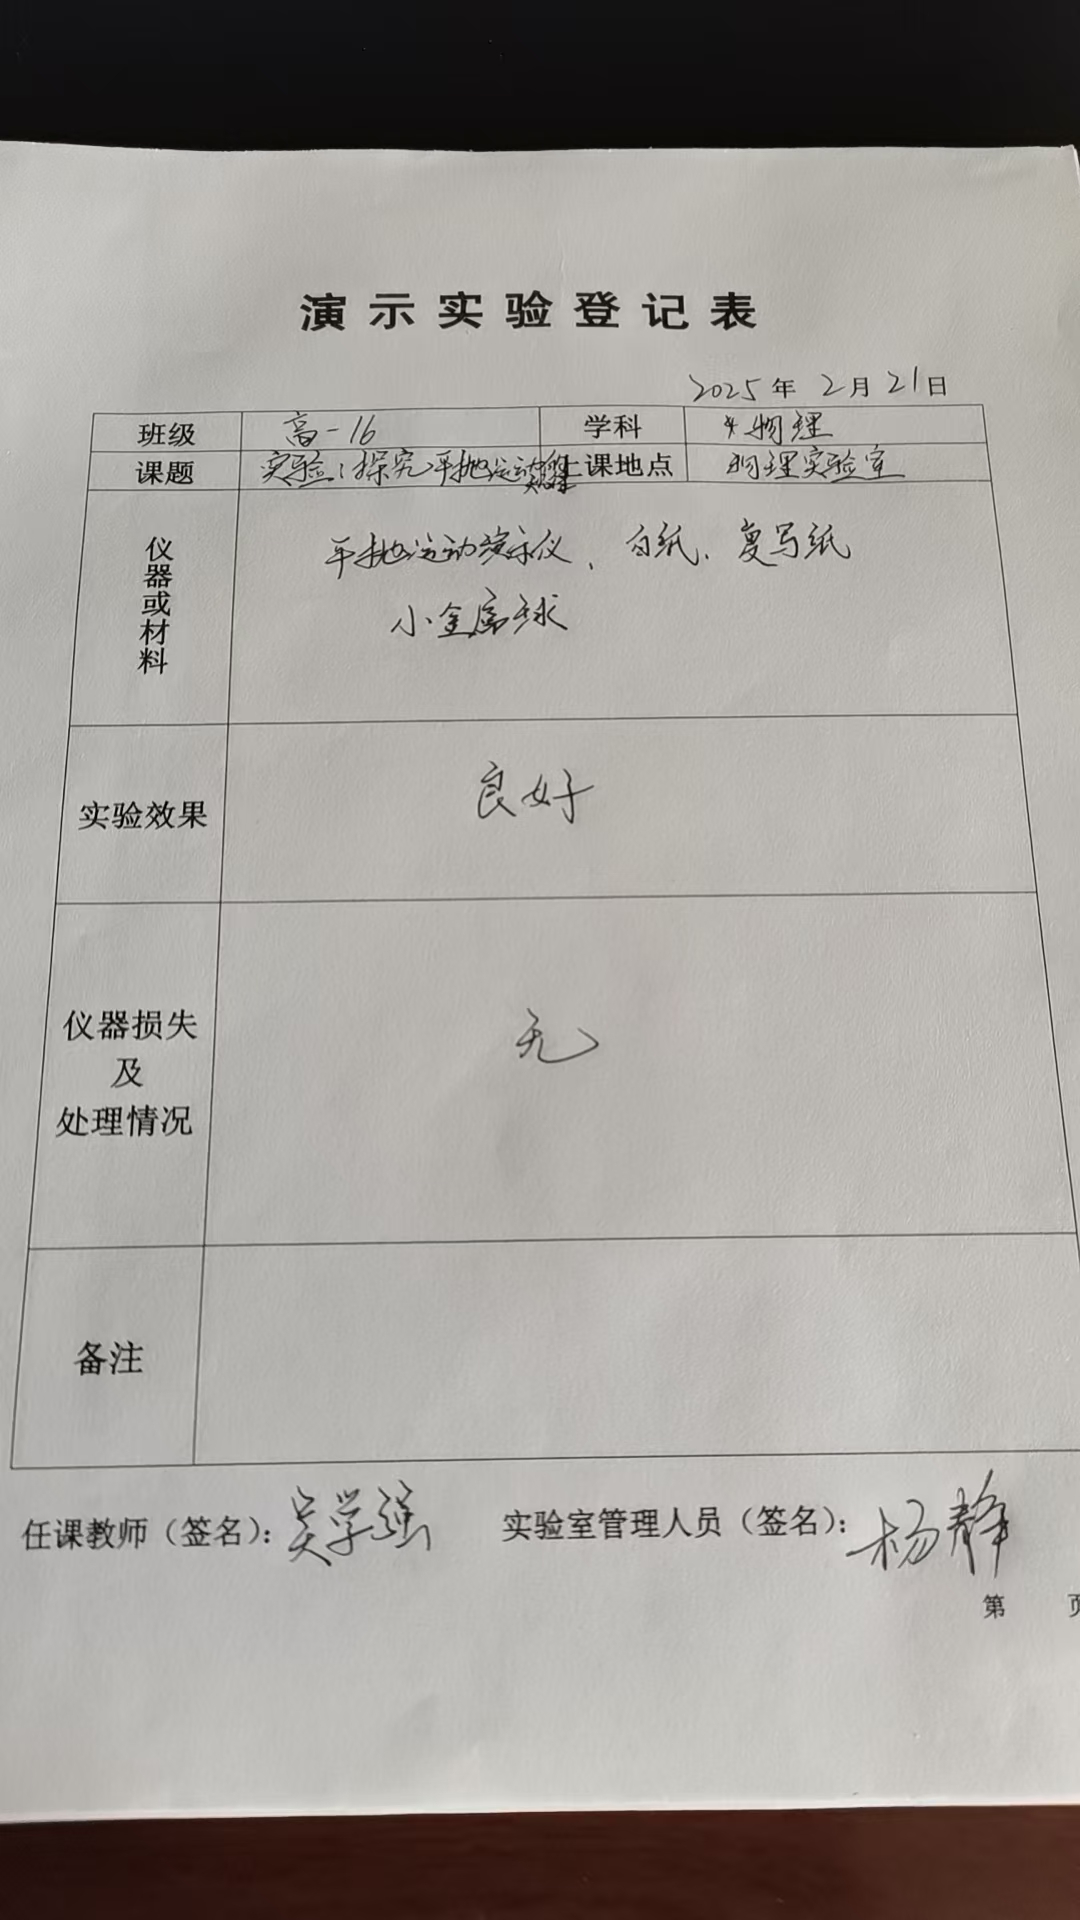 演示实验登记表
2025年2月21日
班级 高一16 学科 物理
课题 实验:探究平抛运动的特点 上课地点 物理实验室
仪器或材料 平抛运动演示仪、白纸、复写纸
小金属球
实验效果 良好
仪器损失
及
处理情况
无
备注
任课教师（签名）：吴学强 实验室管理人员（签名）：杨静
第 页